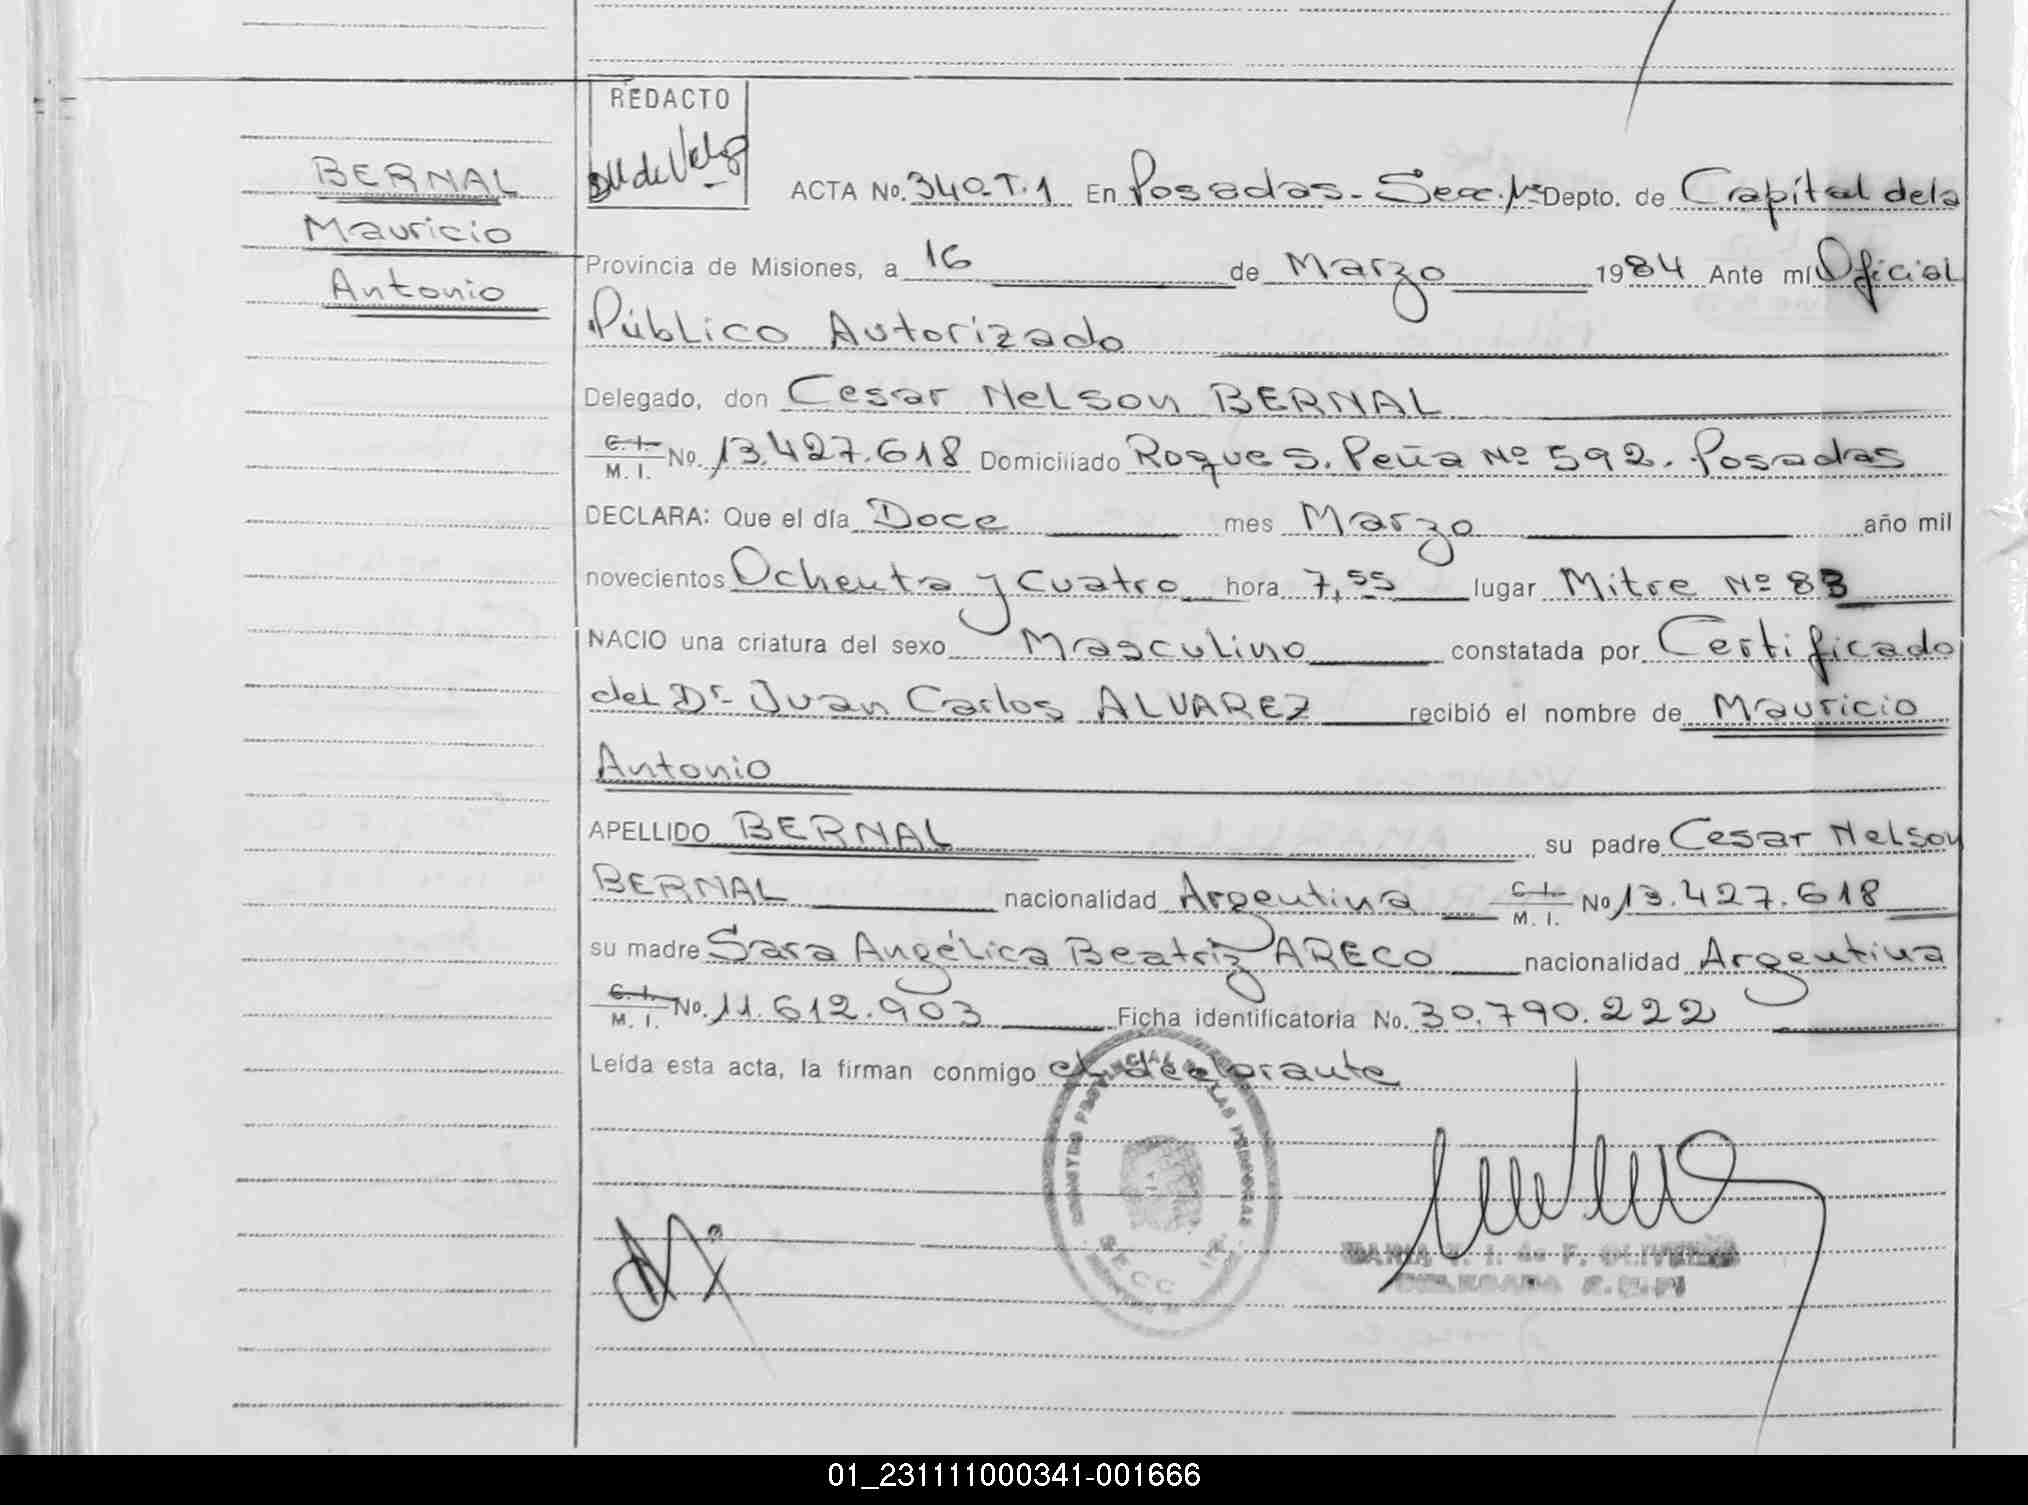 BERNAL
Mauricio
Antonio
REDACTO
ACTA No. 340-T.1 En Posadas - Secc. 1ª Depto. de Capital de la
Provincia de Misiones, a 16 de Marzo 1984 Ante mí Oficial
Público Autorizado
Delegado, don Cesar Nelson BERNAL
C. I. / M. I. No. 13.427.618 Domiciliado Roque S. Peña Nº 592. Posadas
DECLARA: Que el día Doce mes Marzo año mil
novecientos Ochenta y Cuatro hora 7,55 lugar Mitre Nº 83
NACIO una criatura del sexo Masculino constatada por Certificado
del Dr. Juan Carlos ALVAREZ recibió el nombre de Mauricio
Antonio
APELLIDO BERNAL su padre Cesar Nelson
BERNAL nacionalidad Argentina C. I. / M. I. No 13.427.618
su madre Sara Angélica Beatriz ARECO nacionalidad Argentina
C. I. / M. I. No. 11.612.903 Ficha identificatoria No. 30.790.222
Leída esta acta, la firman conmigo el declarante
PROVINCIAL DE LAS PERSONAS
SECC
MARIA T. I. de F. OLIVEIRA
DELEGADA
01_231111000341-001666